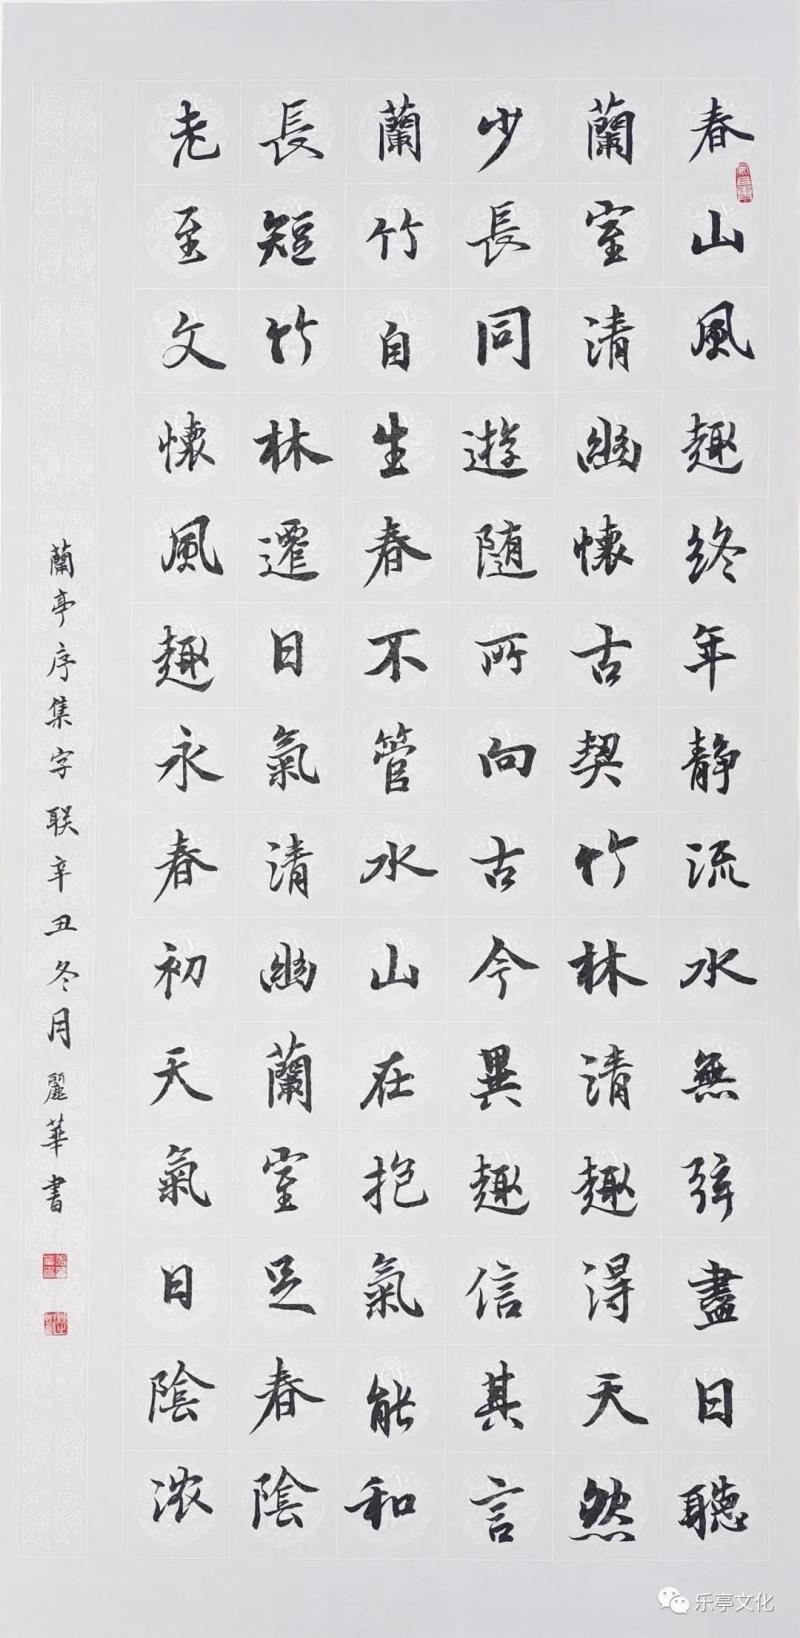 春山風趣終年静流水無弦盡日聽
蘭室清幽懷古契竹林清趣得天然
少長同遊隨所向古今異趣信其言
蘭竹自生春不管水山在抱氣能和
長短竹林遷日氣清幽蘭室足春陰
老至文懷風趣永春初天氣日陰濃
蘭亭序集字联辛丑冬月麗華書
乐亭文化